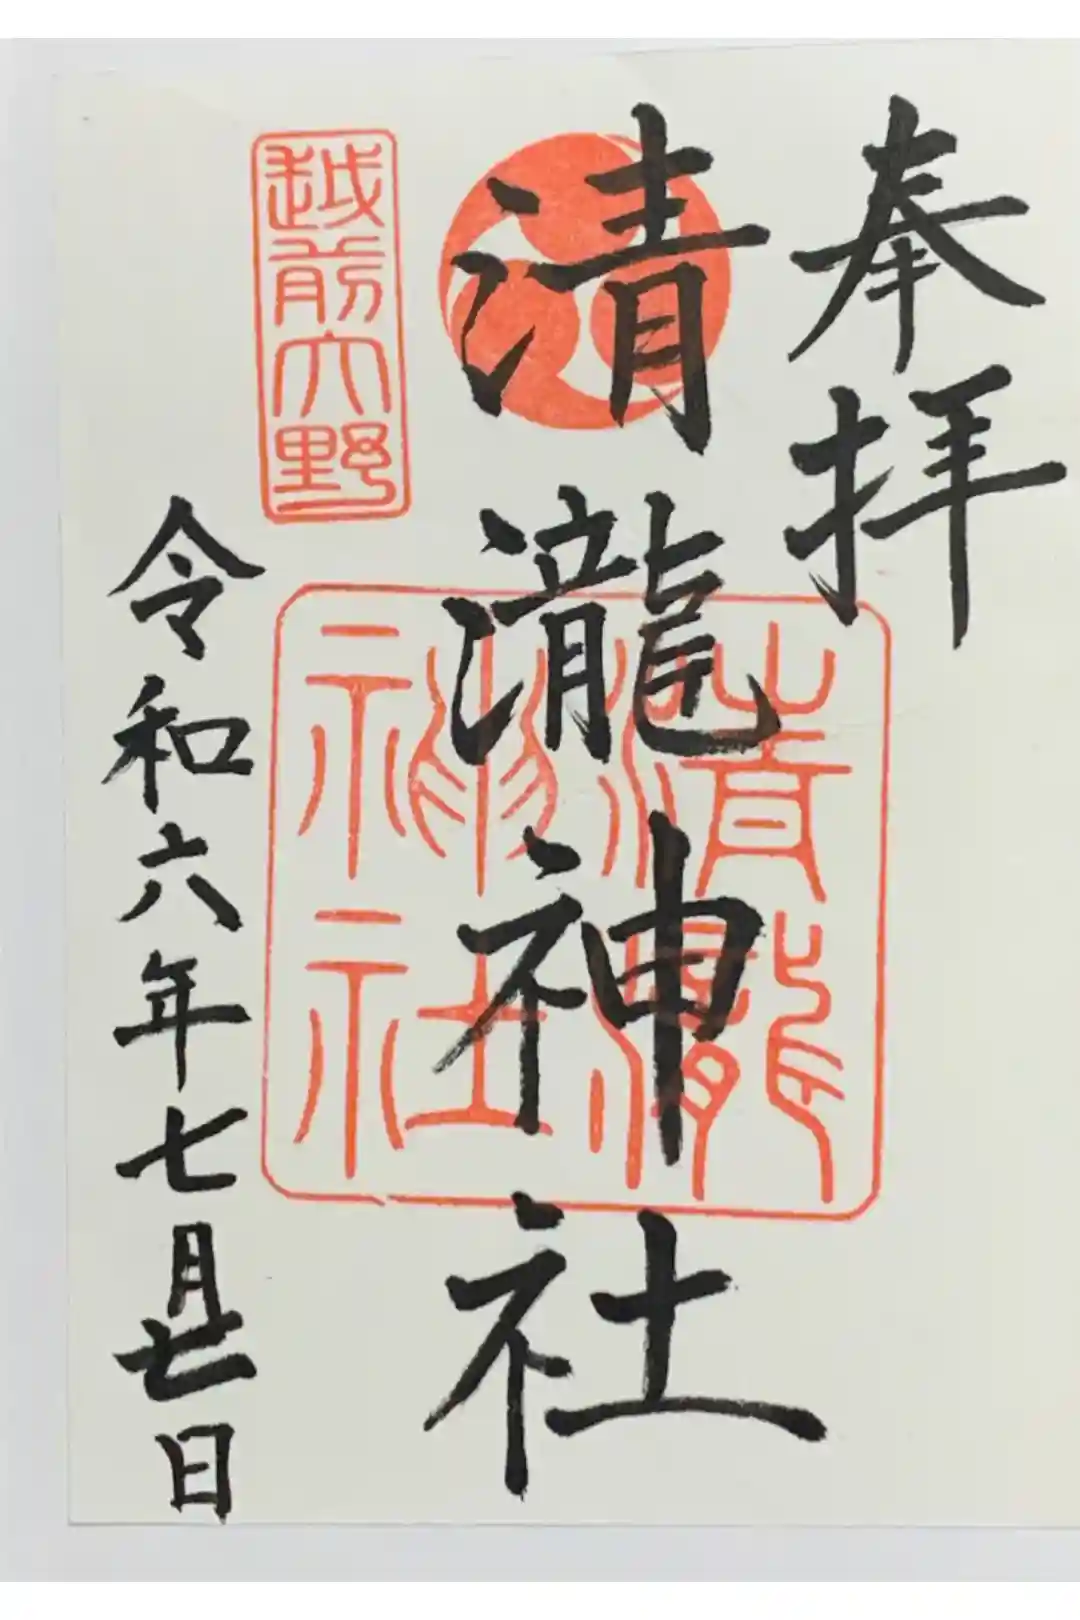 奉拝
清瀧神社
越前大野
清瀧神社
令和六年七月廿日